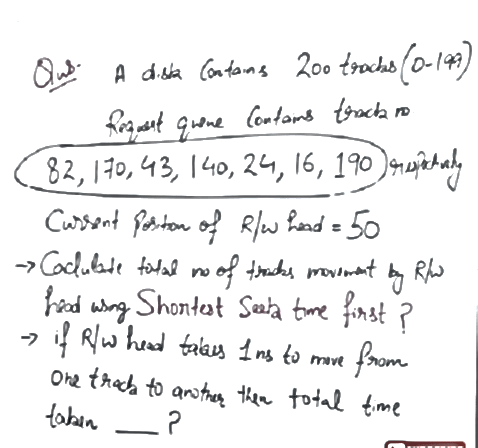 Que. A disk Contains 200 tracks (0-199)
Request queue Contains track no
82, 170, 43, 140, 24, 16, 190 respectively
Current Position of R/w head = 50
→ Caclulate total no of tracks movement by R/w
head using Shortest Seek time first ?
→ if R/w head takes 1 ns to move from
one track to another then total time
taken ___ ?